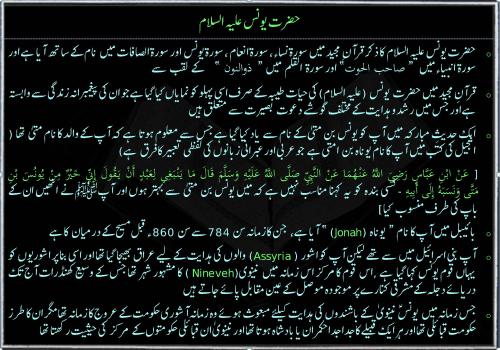 حضرت یونس علیہ السلام
حضرت یونس علیہ السلام کا ذکر قرآن مجید میں سورۃ نساء، سورۃ انعام، سورۃ یونس اور سورۃ الصافات میں نام کے ساتھ آیا ہے اور
سورۃ انبیاء میں " صاحب الحوت " اور سورۃ القلم میں " ذوالنون " کے لقب سے
قرآن مجید میں حضرت یونس (علیہ السلام) کی حیات طیبہ کے صرف اسی پہلو کو نمایاں کیا گیا ہے جو ان کی پیغمبرانہ زندگی سے وابستہ
ہے اور جس میں رشد و ہدایت کے مختلف گوشے دعوت بصیرت سے متعلق ہیں
ایک حدیث مبارکہ میں آپ کو یونس بن متی کے نام سے یاد کیا گیا ہے جس سے معلوم ہوتا ہے کہ آپ کے والد کا نام متی تھا (
انجیل کی کتب میں آپ کا نام یوناہ بن امتی ہے جو عربی اور عبرانی زبانوں کی لفظی تعبیر کا فرق ہے)
[ عَنْ ابْنِ عَبَّاسٍ رَضِيَ اللَّهُ عَنْهُمَا عَنْ النَّبِيِّ صَلَّى اللَّهُ عَلَيْهِ وَسَلَّمَ قَالَ مَا يَنْبَغِي لِعَبْدٍ أَنْ يَقُولَ إِنِّي خَيْرٌ مِنْ يُونُسَ بْنِ
مَتَّى وَنَسَبَهُ إِلَى أَبِيهِ - کسی بندہ کو یہ کہنا مناسب نہیں ہے کہ میں یونس بن متی سے بہتر ہوں اور آپ ﷺ نے انھیں ان کے
باپ کی طرف منسوب کیا]
بائیبل میں آپ کا نام " یوناہ (Jonah) " آیا ہے، جن کا زمانہ سن 784 سے سن 860۔ قبل مسیح کے درمیان کا ہے
آپ بنی اسرائیل میں سے تھے لیکن آپ کو اشور (Assyria) والوں کی ہدایت کے لیے عراق بھیجا گیا تھا اور اسی بنا پر اشوریوں کو
یہاں قوم یونس کہا گیا ہے، اس قوم کا مرکز اس زمانہ میں نینویٰ (Nineveh) کا مشہور شہر تھا جس کے وسیع کھنڈرات آج تک
دریائے دجلہ کے مشرقی کنارے پر موجودہ موصل کے عین مقابل پائے جاتے ہیں
جس زمانہ میں یونسؑ نینویٰ کے باشندوں کی ہدایت کیلئے مبعوث ہوئے وہ زمانہ آشوری حکومت کے عروج کا زمانہ تھا مگر ان کا طرز
حکومت قبائلی تھا اور ہر ایک قبیلے کا جدا جدا حکمران یا بادشاہ ہوتا تھا اور نینویٰ ان قبائلی حکومتوں کے مرکز کی حیثیت رکھتا تھا